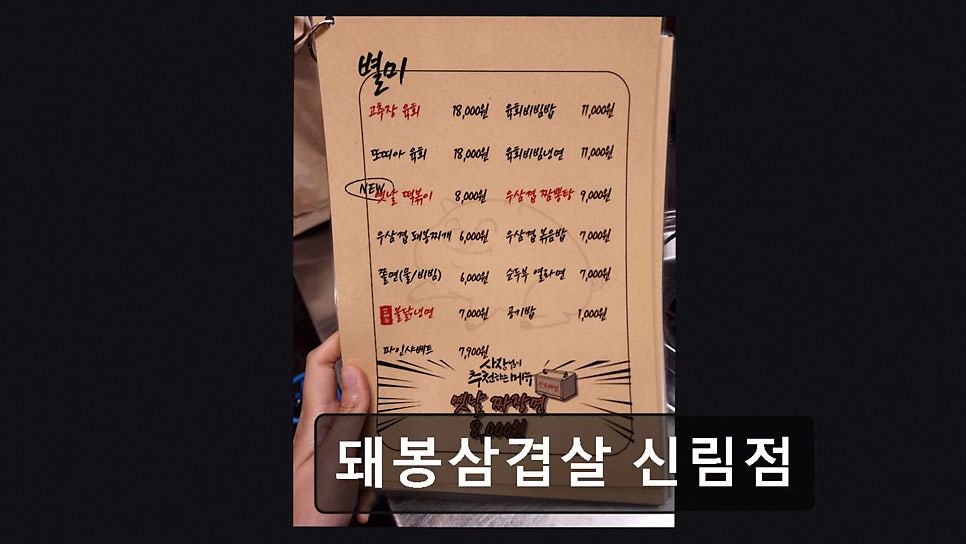 별미
고추장 육회 18,000원 육회비빔밥 11,000원
또띠아 육회 18,000원 육회비빔냉면 11,000원
NEW
옛날 떡볶이 8,000원 우삼겹 짬뽕탕 9,000원
우삼겹 돼봉찌개 6,000원 우삼겹 볶음밥 7,000원
쫄면(물/비빔) 6,000원 순두부 열라면 7,000원
불닭냉면 7,000원 공기밥 1,000원
파인샤베트 7,900원
사장님이
추천하는 메뉴
옛날 짜장면
8,000원
돼봉삼겹살 신림점